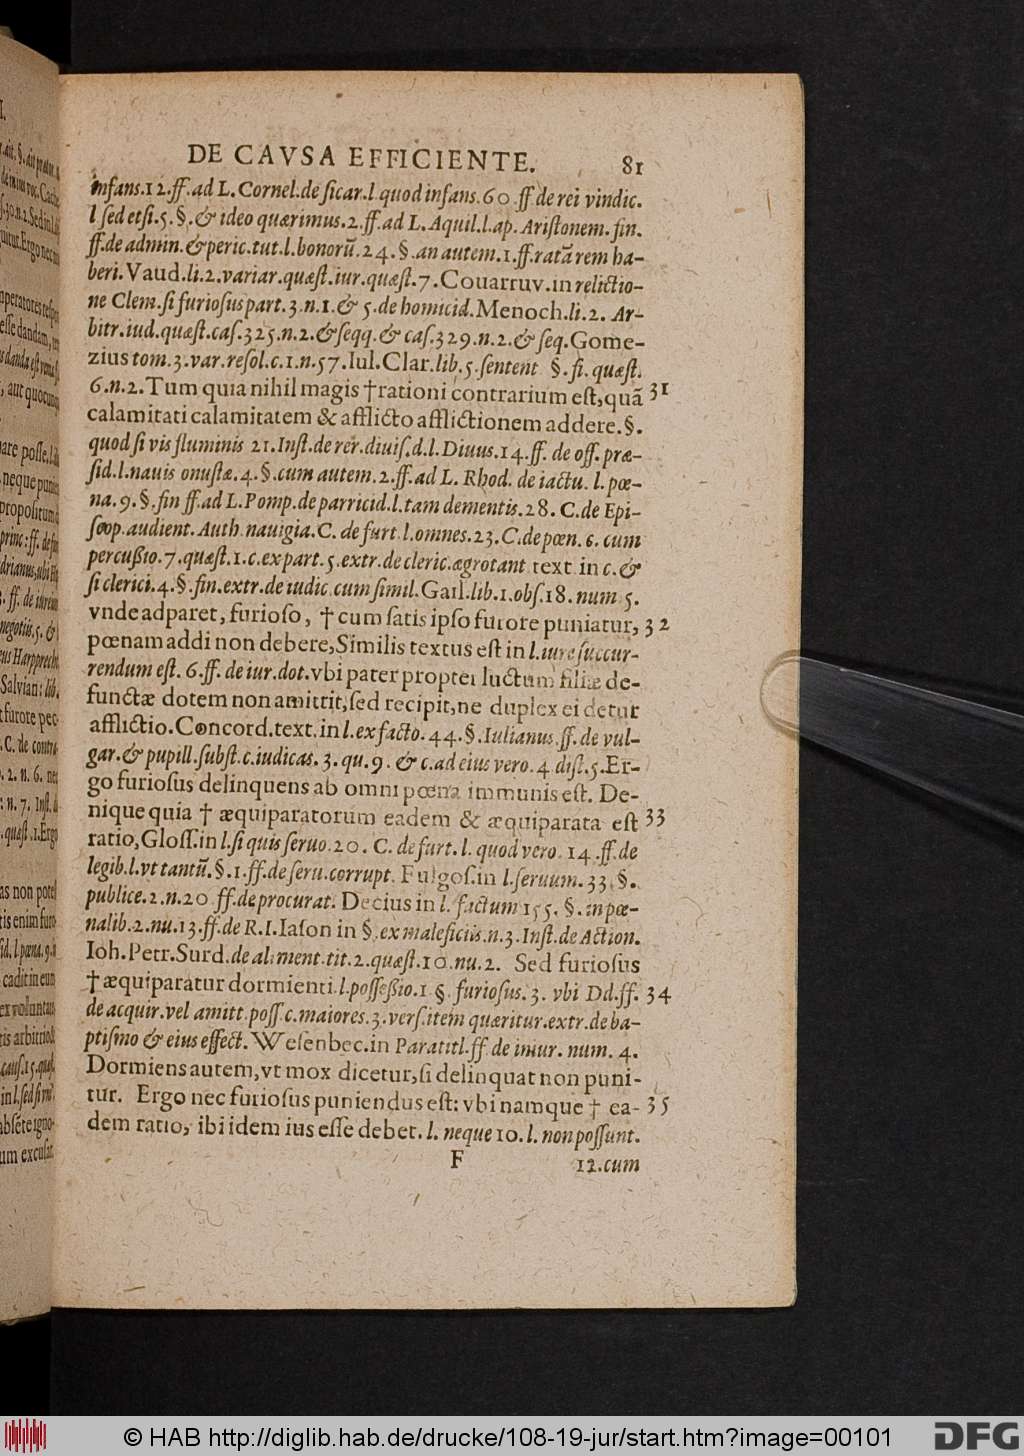 DE CAVSA EFFICIENTE. 81
infans.12.ff.ad L.Cornel.de ſicar.l.quod infans.60.ff.de rei vindic.
l ſed etſi.5.§.& ideo quærimus.2.ff.ad L.Aquil.l.ap.Ariſtonem.fin.
ff.de admin.&peric.tut.l.bonorũ.24.§.an autem.1.ff.ratã rem ha-
beri.Vaud.li.2.variar.quæſt.iur.quæſt.7.Couarruv.in relictio-
ne Clem.ſi furioſus part.3.n.1.& 5.de homicid.Menoch.li.2. Ar-
bitr.iud.quæſt.caſ.325.n.2.&ſeqq.& caſ.329.n.2.& ſeq.Gome-
zius tom.3.var.reſol.c.1.n.57.Iul.Clar.lib.5.ſentent §.fi.quæſt.
6.n.2.Tum quia nihil magis †rationi contrarium eſt,quã 31
calamitati calamitatem & afflicto afflictionem addere.§.
quod ſi vis fluminis 21.Inſt.de rer.diuiſ.d.l.Diuus.14.ff. de off.præ-
ſid.l.nauis onuſtæ.4.§.cum autem.2.ff.ad L. Rhod. de iactu. l.pœ-
na.9.§.fin ff.ad L.Pomp.de parricid.l.tam dementis.28. C.de Epi-
ſcop.audient.Auth.nauigia.C. de furt l.omnes.23.C.de pœn.6. cum
percußio.7.quæſt.1.c.ex part.5.extr.de cleric.ægrotant text in c.&
ſi clerici.4.§.fin.extr.de iudic cum ſimil.Gail.lib.1.obſ.18.num 5.
vnde adparet, furioſo, †cum ſatis ipſo furore puniatur, 32
pœnam addi non debere,Similis textus eſt in l.iure ſuccur-
rendum eſt. 6.ff.de iur.dot.vbi pater propter luctum filiæ de-
functæ dotem non amittit,ſed recipit,ne duplex ei detur
afflictio.Concord.text.in l.ex facto.44.§.Iulianus.ff.de vul-
gar.& pupill.ſubſt.c.iudicas.3.qu.9. & c.ad eius vero.4 diſt.5.Er-
go furioſus delinquens ab omni pœna immunis eſt. De-
nique quia † æquiparatorum eadem & æquiparata eſt 33
ratio,Gloſſ.in l.ſi quis ſeruo.20. C. de furt.l. quod vero. 14.ff.de
legib.l.vt tantũ.§.1.ff.de ſeru.corrupt. Fulgoſ.in l.ſeruum.33.§.
publice.2.n.20 ff.de procurat. Decius in l.factum 155. §.in pœ-
nalib.2.nu.13.ff.de R.I.Iaſon in §.ex maleficiis.n.3.Inſt.de Action.
Ioh.Petr.Surd.de aliment.tit.2.quæſt.10.nu.2. Sed furioſus
†æquiparatur dormienti.l.poſſeßio.1 §. furioſus.3. vbi Dd.ff. 34
de acquir.vel amitt.poſſ.c.maiores.3.verſ.item quæritur.extr.de ba-
ptiſmo & eius effect.Weſenbec.in Paratitl.ff de iniur. num. 4.
Dormiens autem,vt mox dicetur,ſi delinquat non puni-
tur. Ergo nec furioſus puniendus eſt: vbi namque † ea- 35
dem ratio, ibi idem ius eſſe debet. l. neque 10.l. non poſſunt.
F 12.cum
© HAB http://diglib.hab.de/drucke/108-19-jur/start.htm?image=00101
DFG